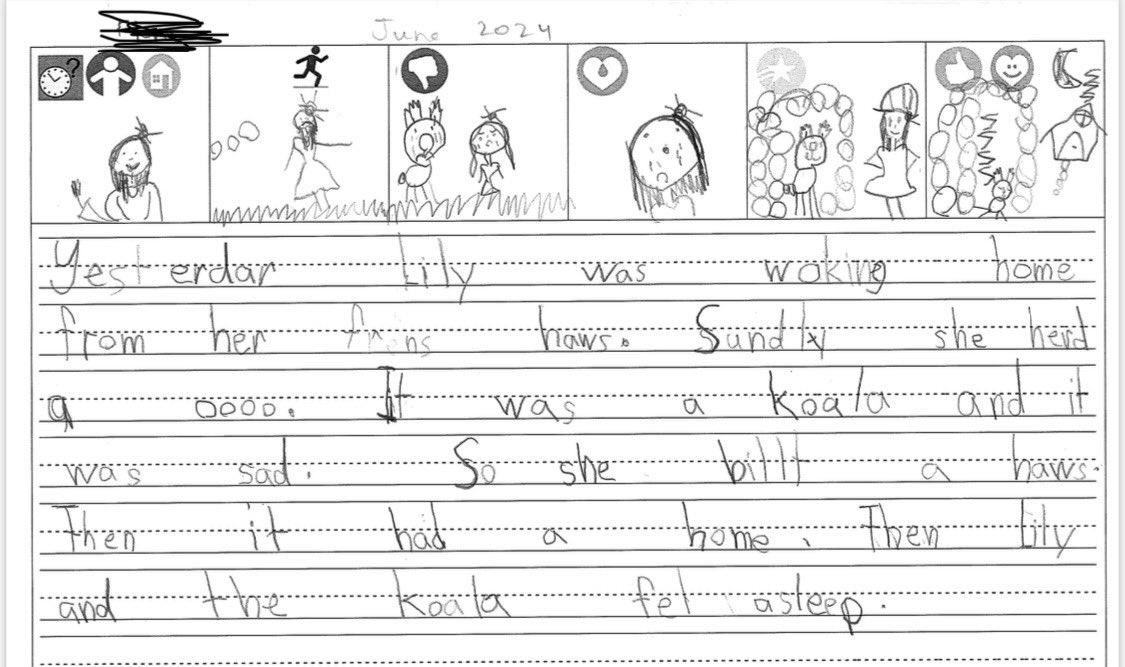 June 2024
?
Yesterdar Lily was woking home
from her frens haws. Sundly she herd
a oooo. It was a koala and it
was sad. So she billt a haws.
Then it had a home. Then Lily
and the koala fel asleep.